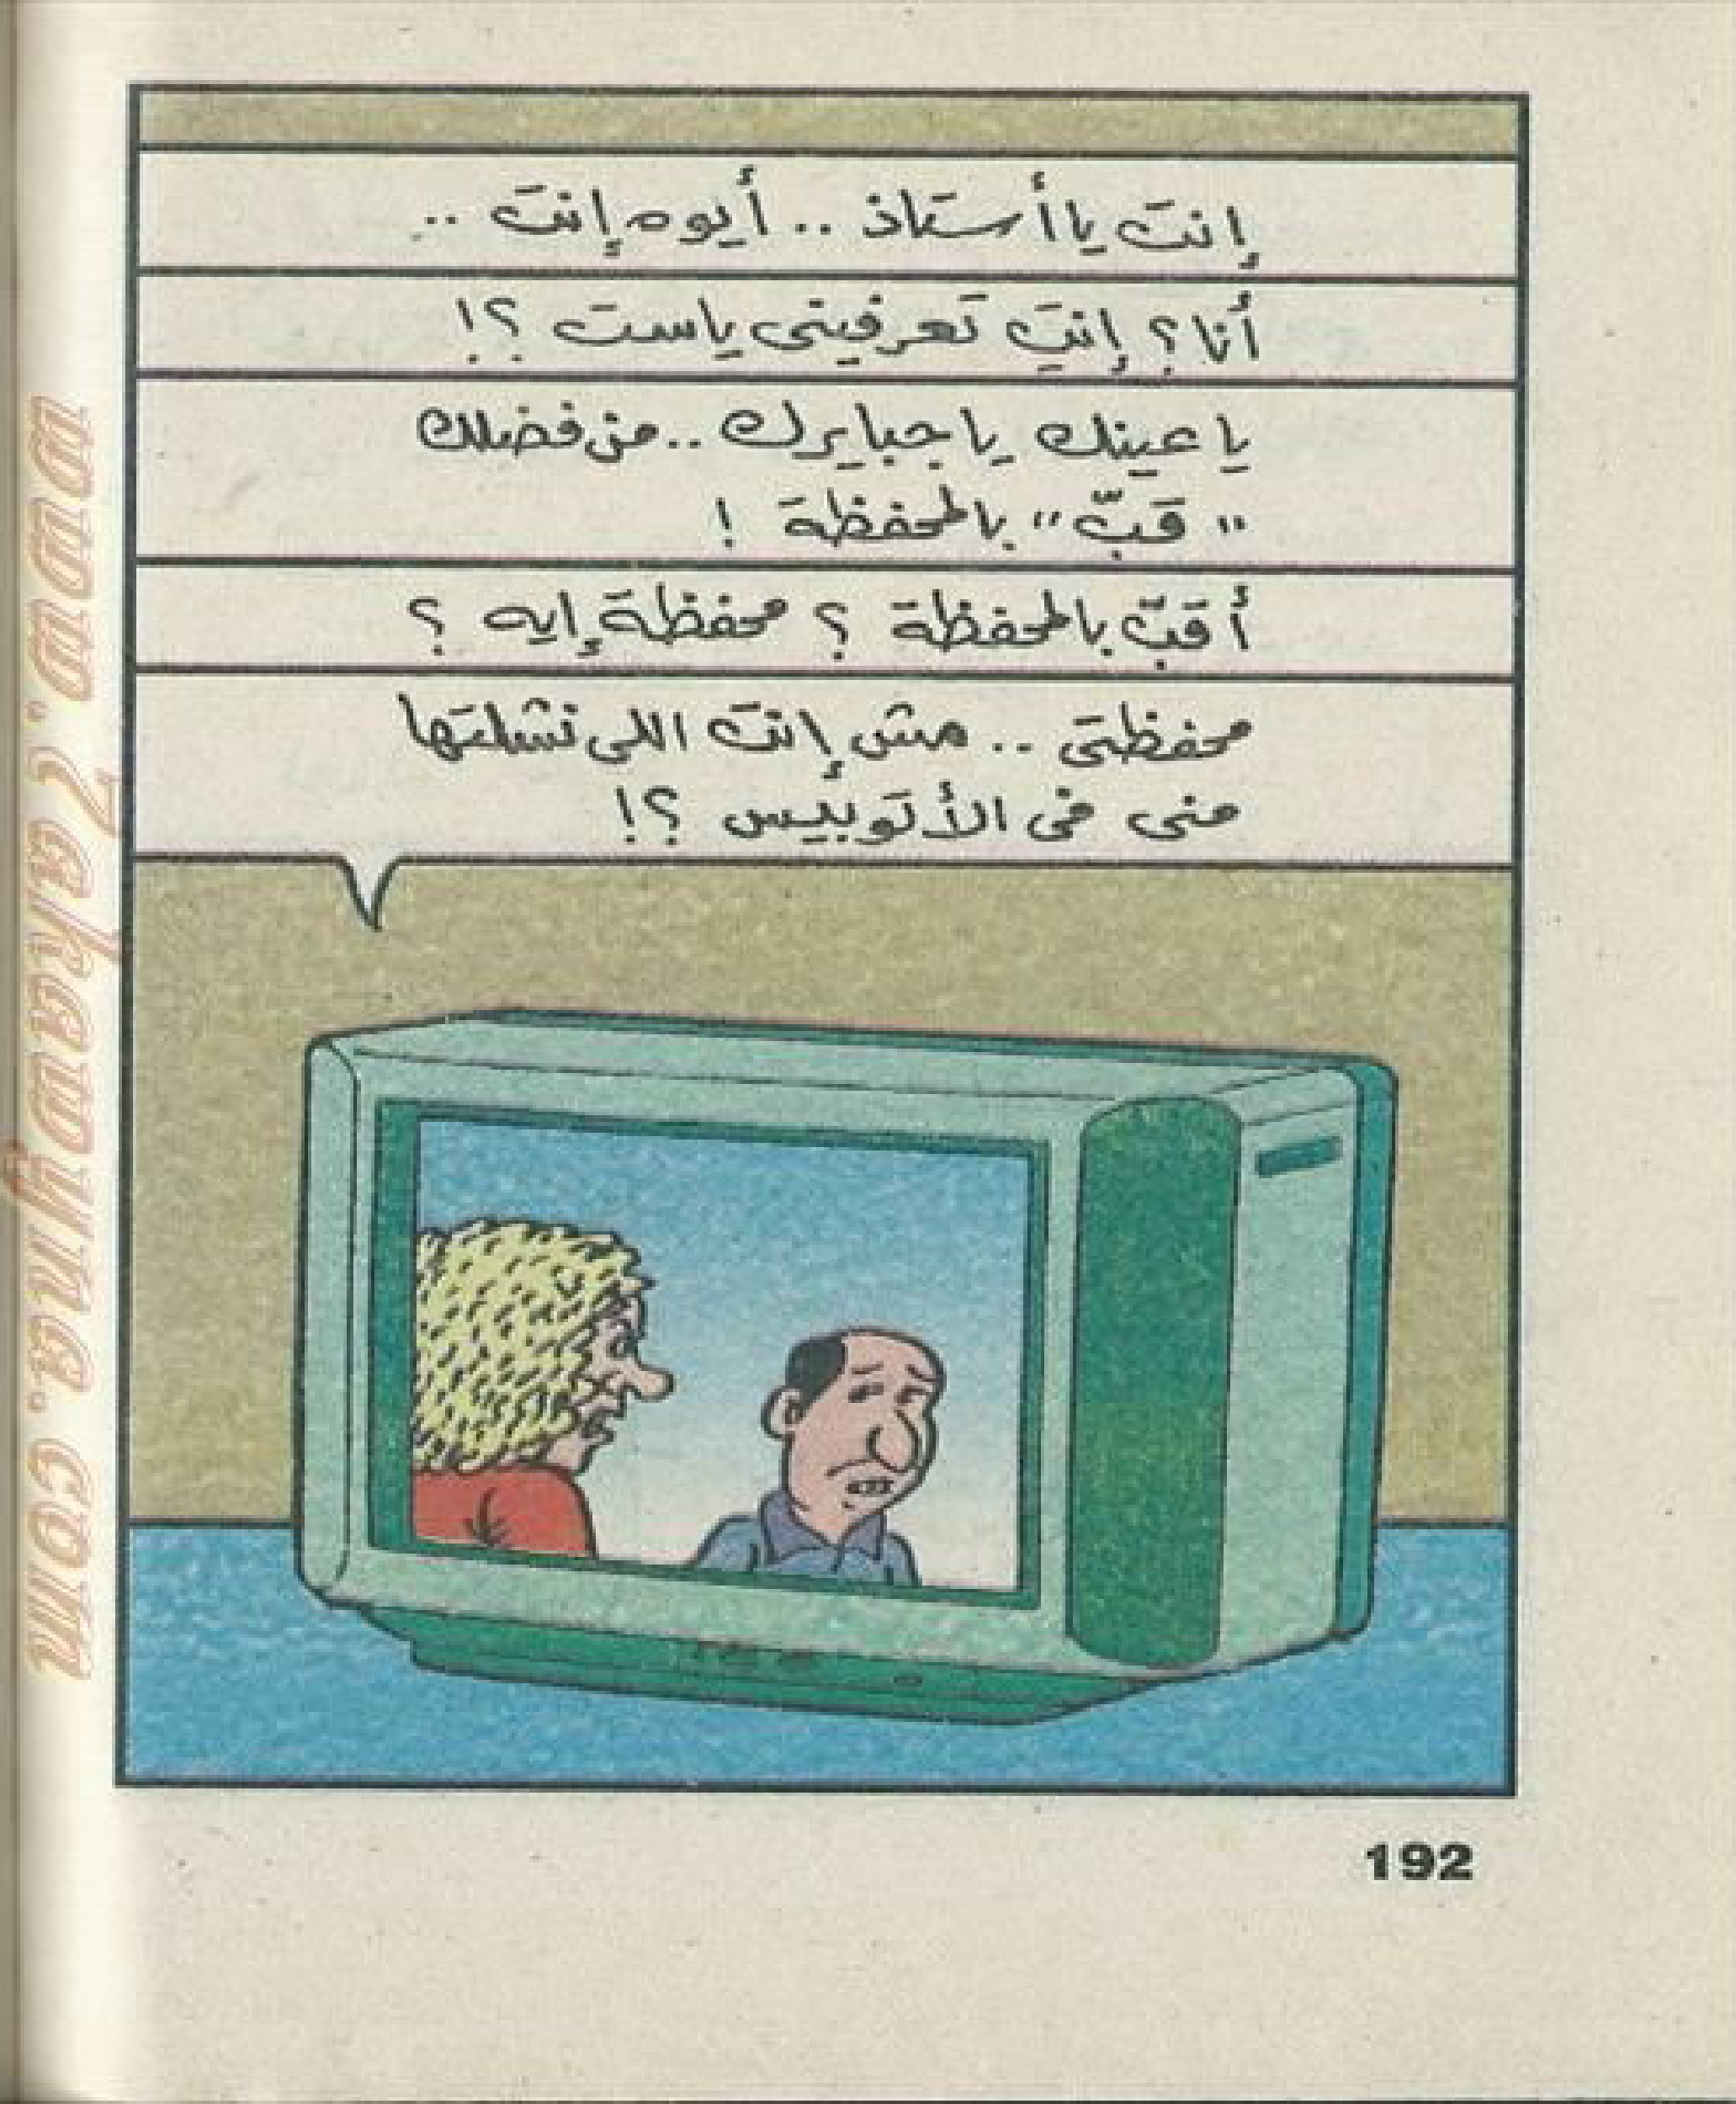 إنتَ يا أستاذ .. أيوه إنتَ ..
أنا ؟ إنتِ تعرفيني ياست ؟!
يا عينك يا جبايرك .. من فضلك
" قبّ " بالمحفظة !
أقبّ بالمحفظة ؟ محفظة إيه ؟
محفظتى .. مش إنتَ اللى نشلتها
منى فى الأتوبيس ؟!
192